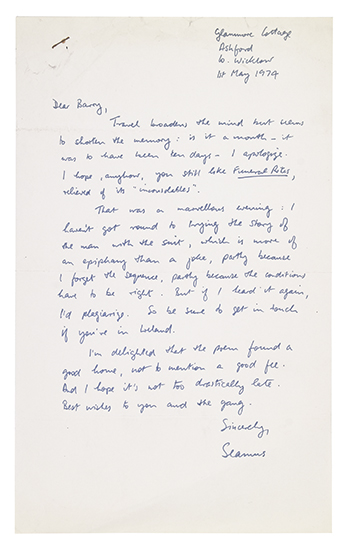 Glanmore Cottage
Ashford
Co. Wicklow
1st May 1974
Dear Barry,
Travel broadens the mind but seems
to shorten the memory: is it a month – it
was to have been ten days – I apologize.
I hope, anyhow, you still like Funeral Rites,
relieved of its "inconsolables".
That was a marvellous evening: I
haven't got round to trying the story of
the man with the suit, which is more of
an epiphany than a joke, partly because
I forget the sequence, partly because the conditions
have to be right. But if I heard it again,
I'd plagiarize. So be sure to get in touch
if you're in Ireland.
I'm delighted that the poem found a
good home, not to mention a good fee.
And I hope it's not too drastically late.
Best wishes to you and the gang.
Sincerely,
Seamus